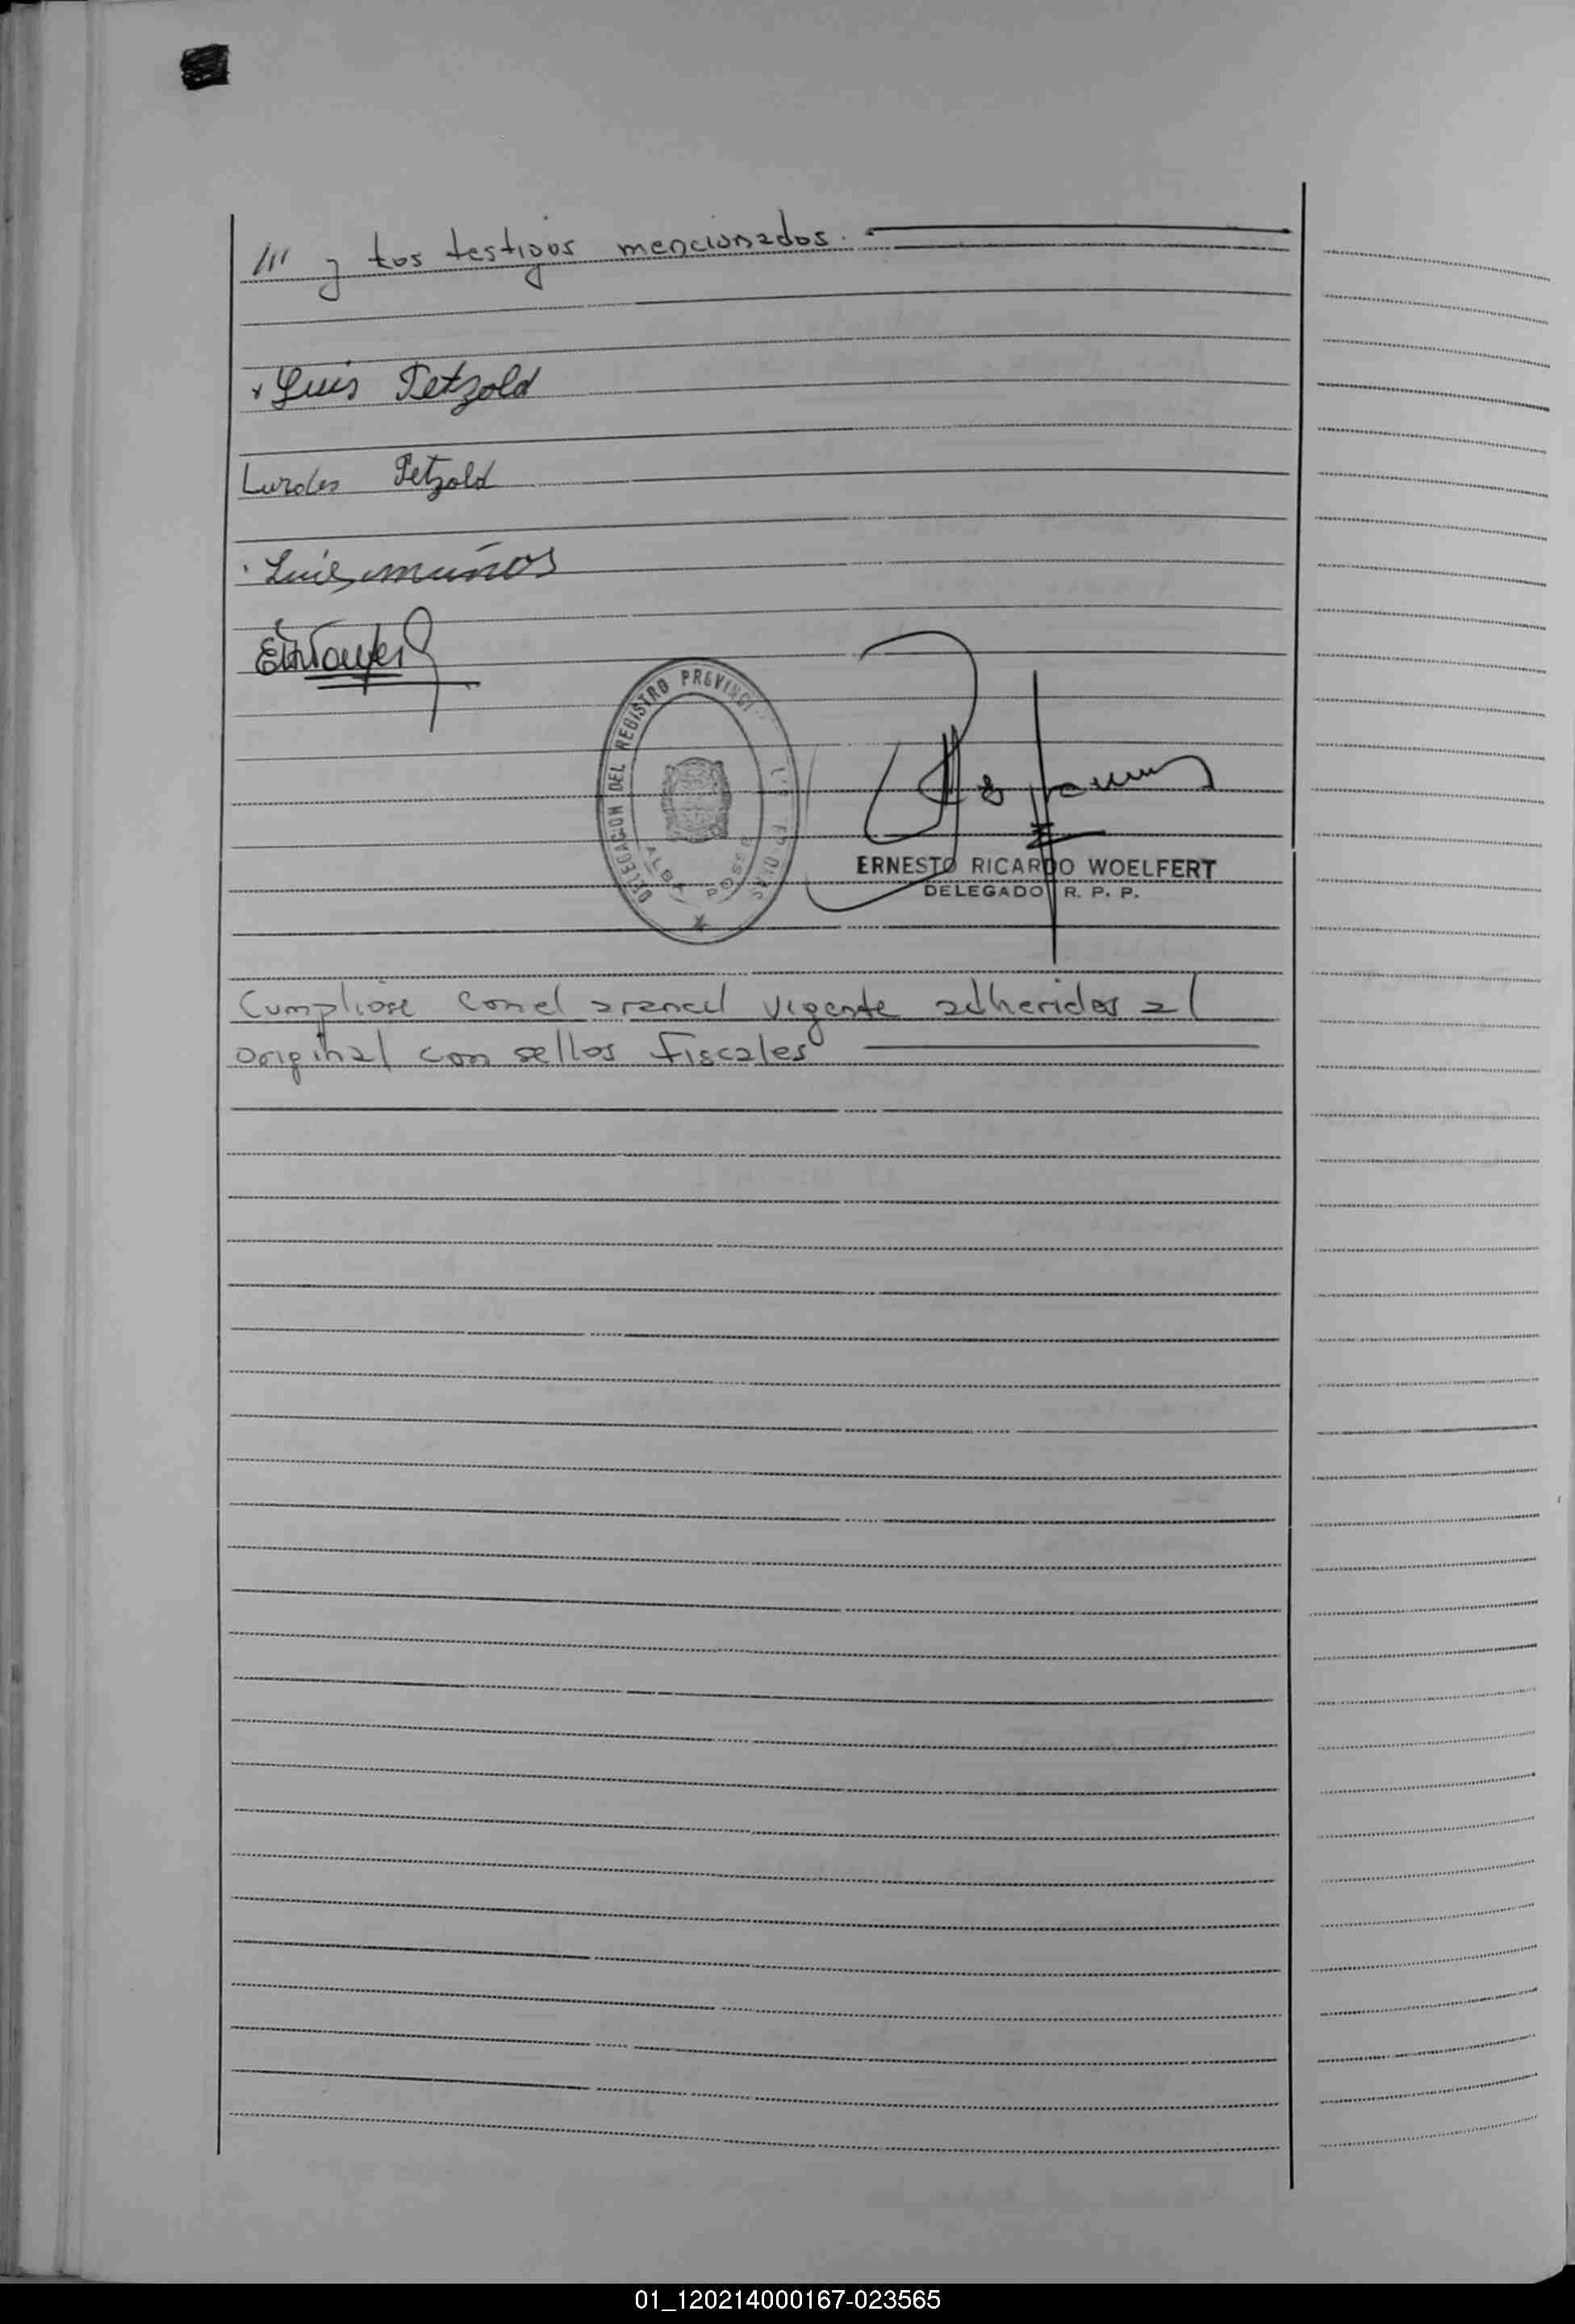 /// y los testigos mencionados.
Luis Petzold
Lurdes Petzold
Luis muños
DELEGACION DEL REGISTRO PROVINCI
ALBA POSSE
ERNESTO RICARDO WOELFERT
DELEGADO R. P. P.
Cumpliose con el arancel vigente adheridos al
original con sellos fiscales
01_120214000167-023565